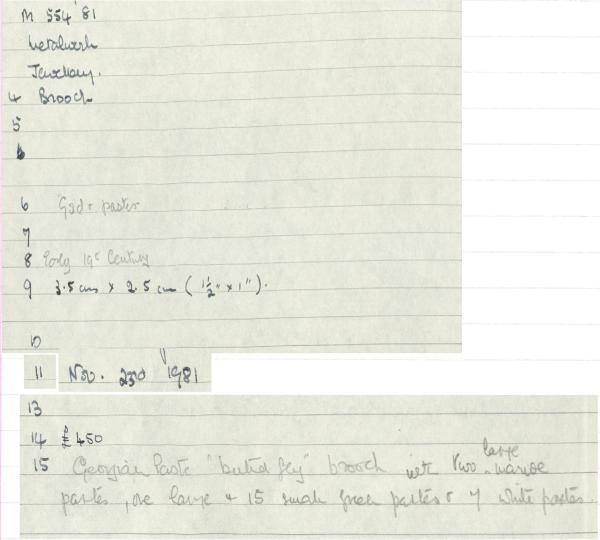 M 554 '81
Metalwork
Jewellery.
4 Brooch
5
6
6 Gold & pastes
7
8 Early 19c Century
9 3.5 cm x 2.5 cm ( 1½" x 1" ).
10
11 Nov. 23rd 1981
13
14 £450
15 Georgian Paste "butterfly" brooch with two large mauve
pastes, one large & 15 small green pastes & 7 white pastes.